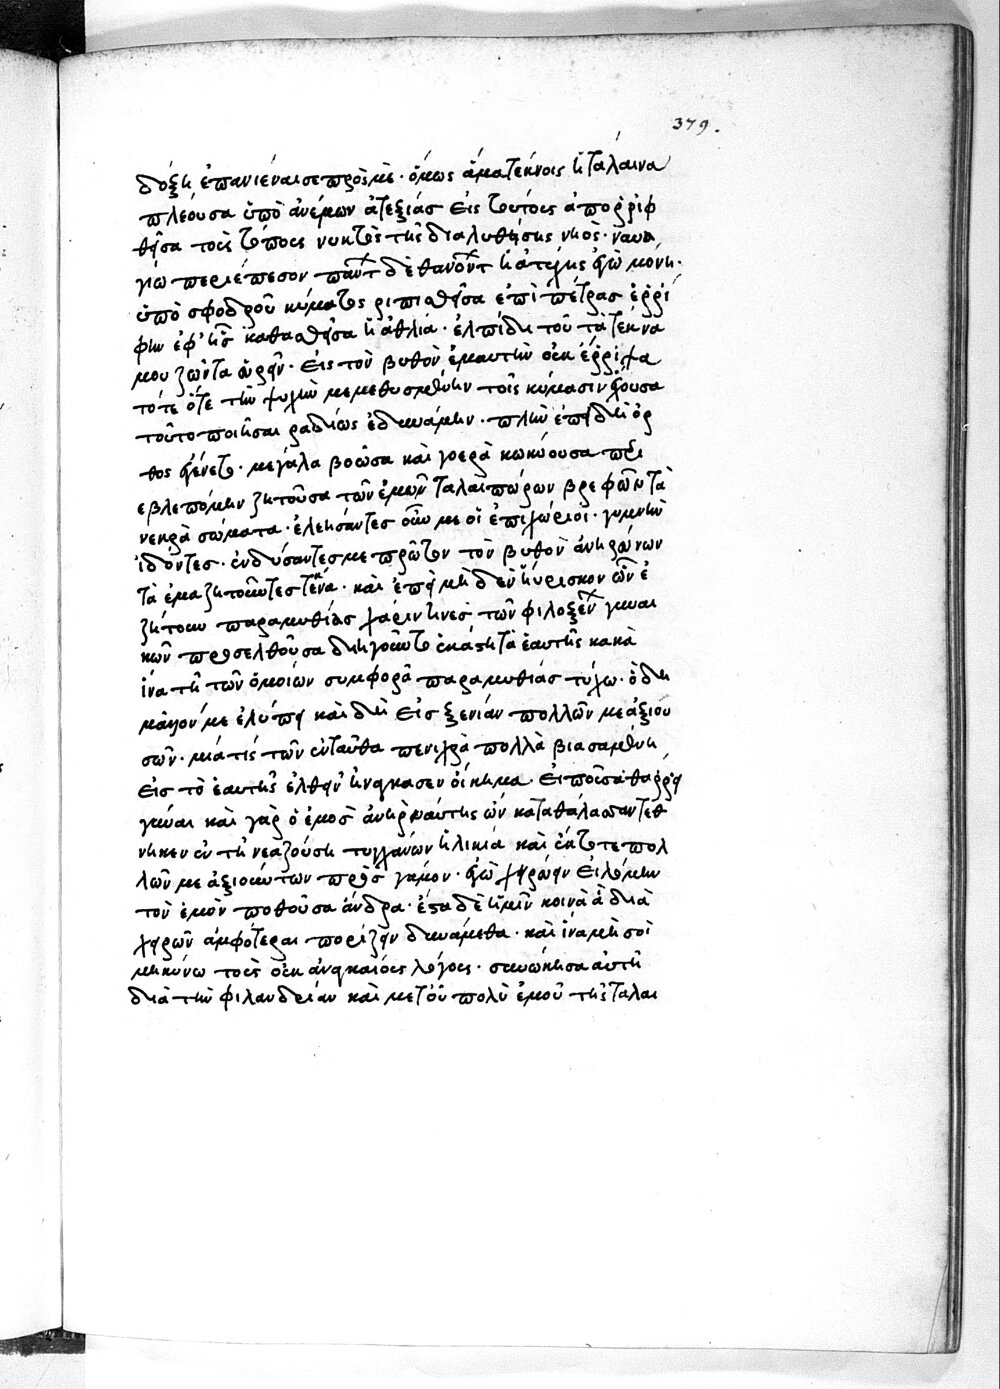 379.
δόξη ἐπανιέναι σε πρὸς μὲ· ὅμως ἅμα τέκνοις ἡ τάλαινα
πλέουσα ὑπὸ ἀνέμων ἀταξίας εἰς τούτους ἀπορριφ
θῆσα τοὺς τόπους νυκτὸς τῆς διαλυθήσης νηὸς· ναυα
γίω περιέπεσον πάντων δὲ θανόντων ἡ ἀτυχὴς ἐγὼ μόνη·
ὑπὸ σφοδροῦ κύματος ριπισθῆσα ἐπὶ πέτρας ἐρρί
φην ἐφ' ἧς καθασθῆσα ἡ ἀθλία· ἐλπίδι τοῦ τὰ τέκνα
μου ζῶντα εὑρεῖν· εἰς τὸν βυθὸν ἐμαυτὴν οὐκ ἔρριψα
τότε ὅτε τὴν ψυχὴν μεμεθυσμένην τοῖς κύμασιν ἔχουσα
τοῦτο ποιῆσαι ραδίως ἐδυνάμην· πλὴν ἐπειδὴ ὄρ
θος ἐγένετο· μεγάλα βοῶσα καὶ γοερὰ κωκύουσα περι
εβλεπόμην ζητοῦσα τῶν ἐμῶν ταλαιπώρων βρεφῶν τὰ
νεκρὰ σώματα· ἐλεήσαντες οὖν με οἱ ἐπιχώριοι· γυμνὴν
ἰδόντες· ἐνδύσαντες με πρῶτον τὸν βυθὸν ἀνηρεύνων
τὰ ἐμὰ ζητοῦντες τέκνα· καὶ ἐπεὶ μηδὲν ηὕρισκον ὧν ἐ
ζήτουν παραμυθίας χάριν τινὲς τῶν φιλοξένων γυναι
κῶν προσελθοῦσα διηγοῦντο ἑκάστη τὰ ἑαυτῆς κακὰ
ἵνα τῆ τῶν ὁμοίων συμφορᾶ παραμυθίας τύχω· ὃ δὴ
μᾶλλόν με ἐλύπει καὶ δὴ εἰς ξενίαν πολλῶν με ἀξιου
σῶν· μία τίς τῶν ἐνταῦθα πενιχρὰ πολλὰ βιασαμένη
εἰς τὸ ἑαυτῆς ἐλθεῖν ἠνάγκασεν οἴκημα· εἰποῦσα θάρρει
γύναι καὶ γὰρ ὁ ἐμὸς ἀνὴρ ναύτης ὢν κατὰ θάλασσαν τέθ
νηκεν ἐν τῆ νεαζούση τυγχάνων ἡλικία καὶ ἔκτοτε πολ
λῶν με ἀξιούντων πρὸς γάμον· ἐγὼ χηρεύειν εἱλόμην
τὸν ἐμὸν ποθοῦσα ἄνδρα· ἔσται δὲ ἡμῖν κοινὰ ἃ διὰ
χειρῶν ἀμφότεραι πορίζειν δυνάμεθα· καὶ ἵνα μὴ σοὶ
μηκύνω τοὺς οὐκ ἀναγκαίους λόγους· συνώκησα αὐτῆ
διὰ τὴν φιλανδρίαν καὶ μετ' οὐ πολὺ ἐμοῦ τῆς ταλαι